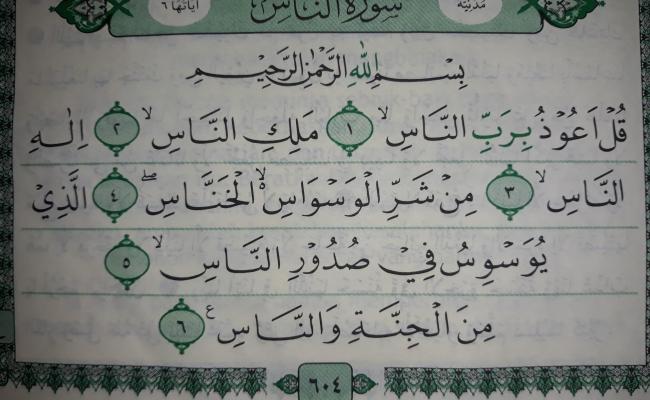 سُورَةُ النَّاسِ
مَدَنِيَّة
اٰيَاتُهَا ٦
بِسْمِ اللهِ الرَّحْمٰنِ الرَّحِيْمِ
قُلْ اَعُوْذُ بِرَبِّ النَّاسِۙ ١ مَلِكِ النَّاسِۙ ٢ اِلٰهِ
النَّاسِۙ ٣ مِنْ شَرِّ الْوَسْوَاسِ ەۙ الْخَنَّاسِۖ ٤ الَّذِيْ
يُوَسْوِسُ فِيْ صُدُوْرِ النَّاسِۙ ٥
مِنَ الْجِنَّةِ وَالنَّاسِ ࣖ ٦
٦٠٤